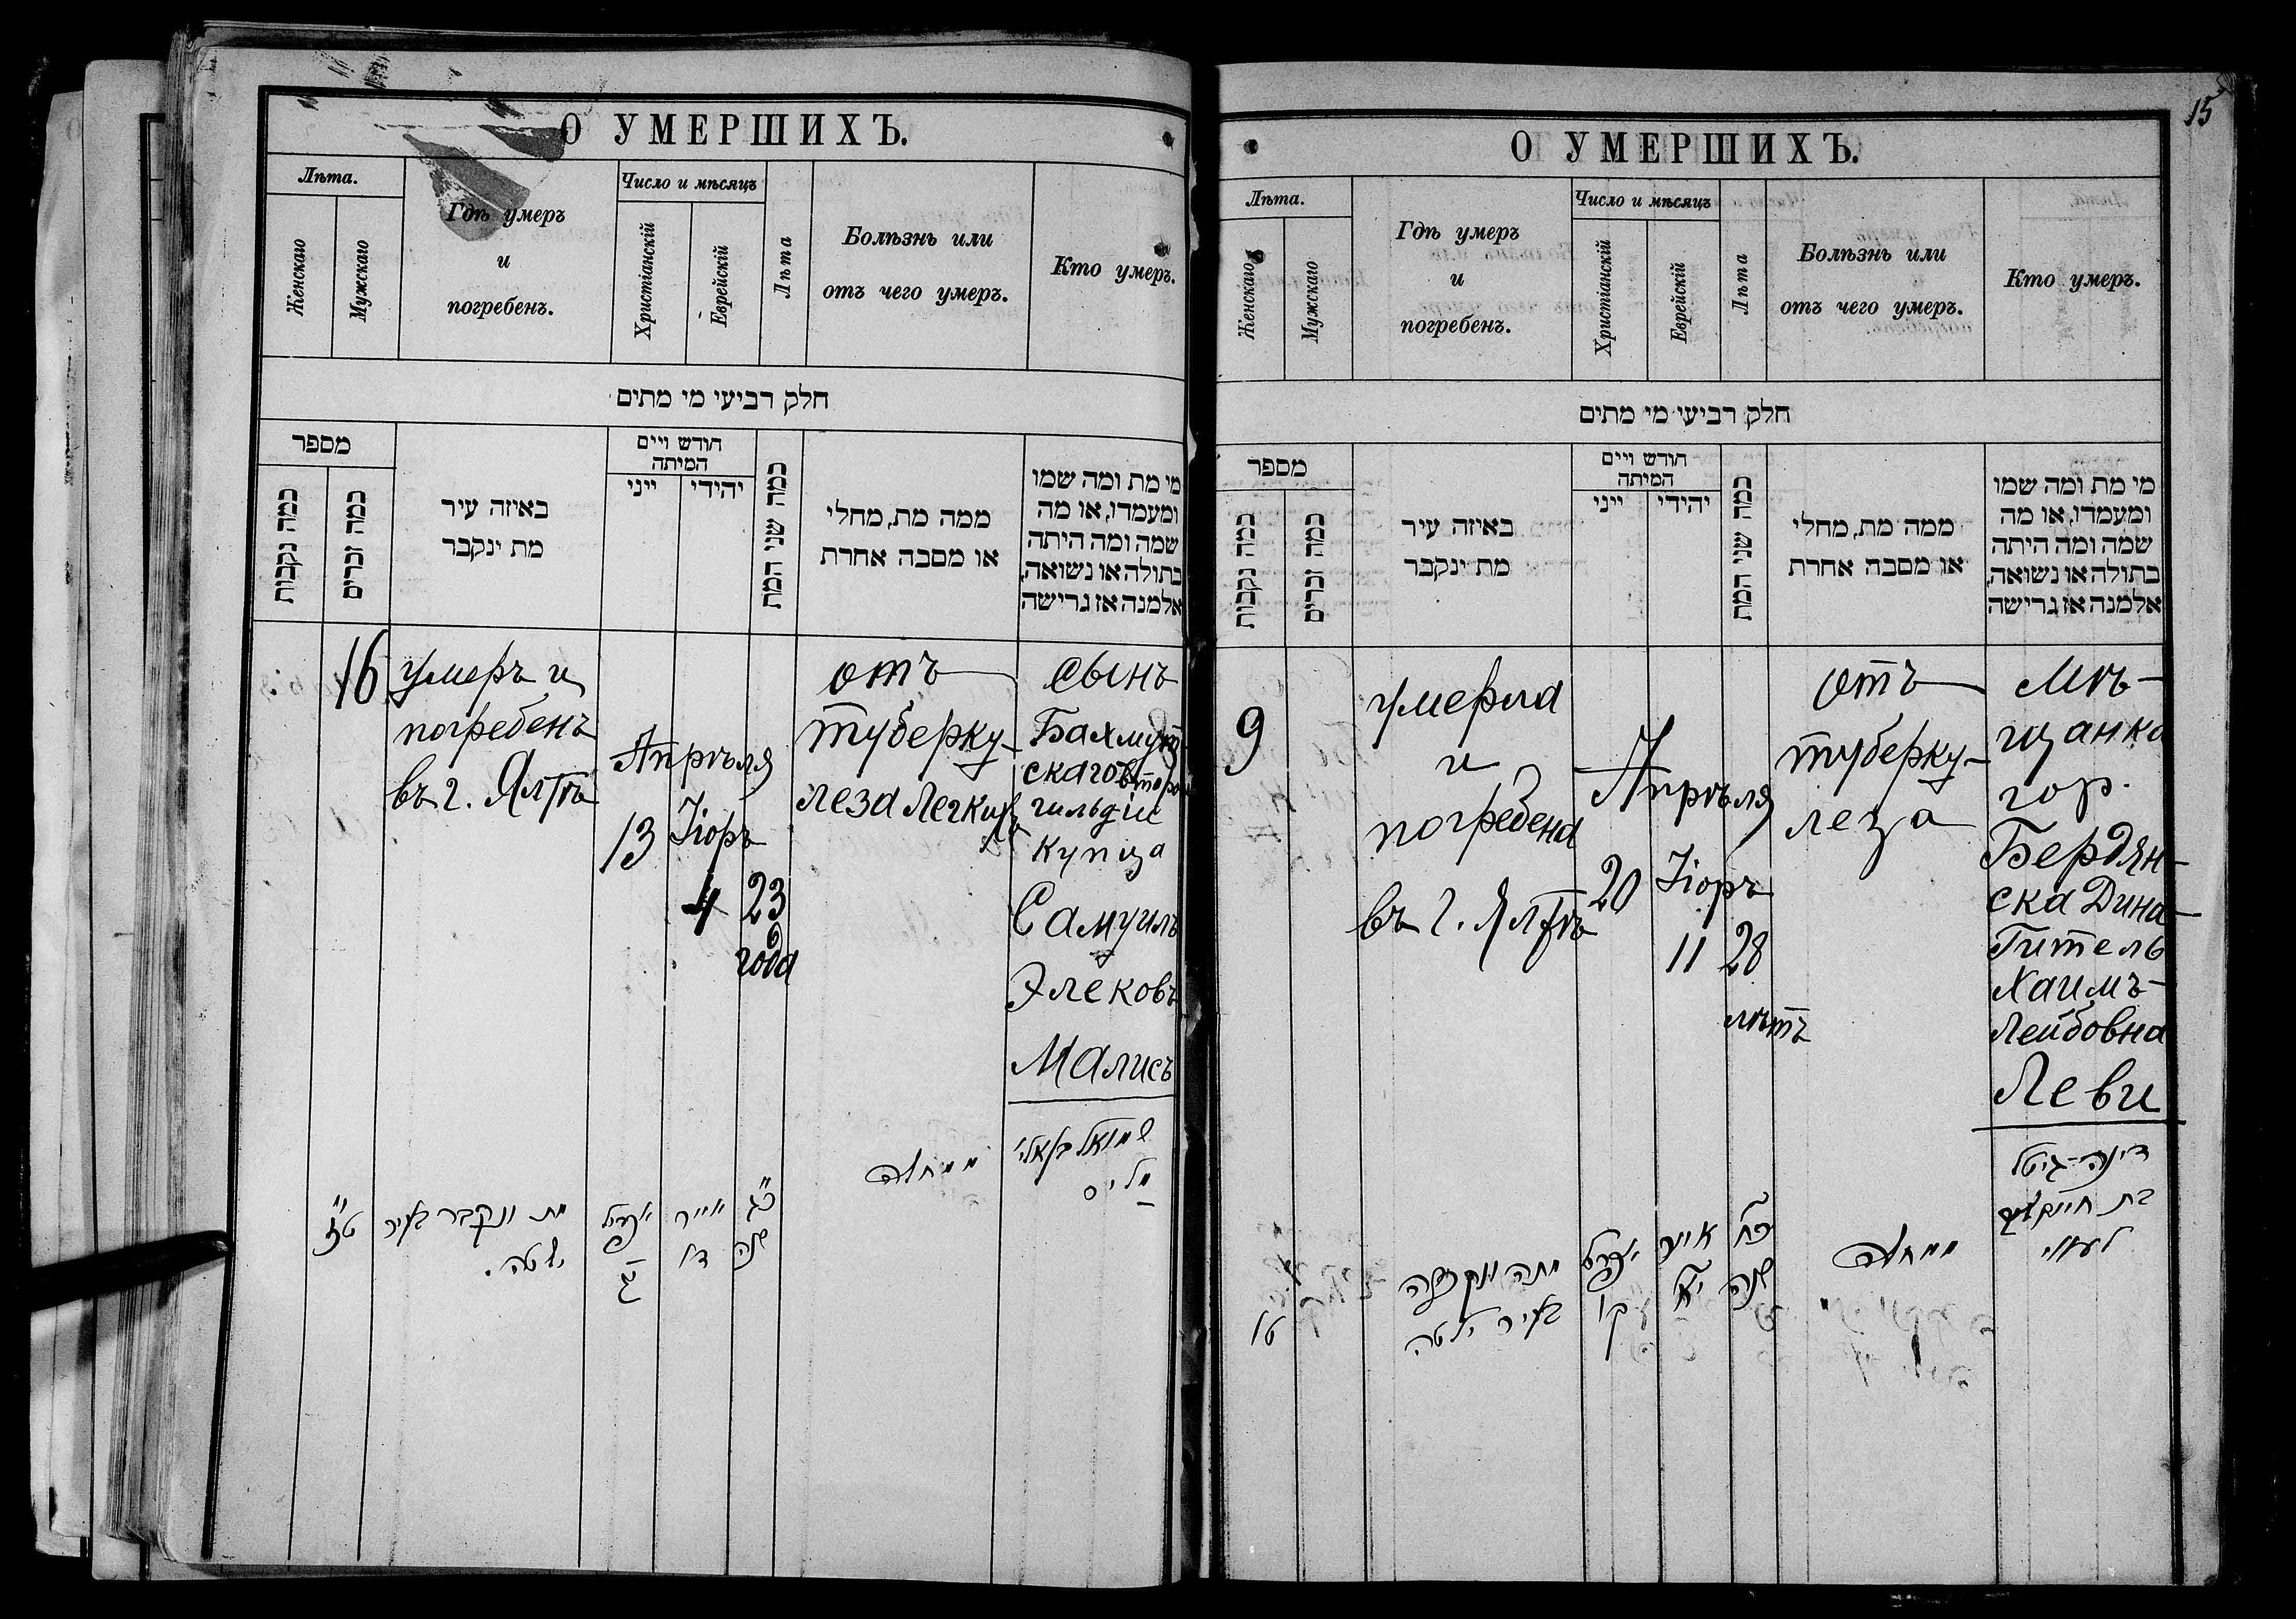 О УМЕРШИХЪ.
Лѣта.
Женскаго
Мужскаго
Гдѣ умеръ
и
погребенъ.
Число и мѣсяцъ
Христіанскій
Еврейскій
Лѣта
Болѣзнь или
отъ чего умеръ.
Кто умеръ.
חלק רביעי מי מתים
מספר
כמה נקבות
כמה זכרים
באיזה עיר
מת ינקבר
חודש ויים
המיתה
ייני
יהידי
כמה שני המת
ממה מת, מחלי
או מסבה אחרת
מי מת ומה שמו
ומעמדו, או מה
שמה ומה היתה
בתולה או נשואה,
אלמנה אז גרישה
16
умеръ и
погребенъ
въ г. Ялтѣ
Апрѣля
13
Іюръ
4
23
года
отъ
туберку-
леза легкихъ
сынъ
Бахмут-
скаго второй
гильдіи
купца
Самуилъ
Элековъ
Малисъ
שמואל
מליס
ממחלה
כ"ג
שנה
אייר
ד'
אפריל
י"ג
מת ונקבר בעיר
ילטה.
ט"ז
15
О УМЕРШИХЪ.
Лѣта.
Женскаго
Мужскаго
Гдѣ умеръ
и
погребенъ.
Число и мѣсяцъ
Христіанскій
Еврейскій
Лѣта
Болѣзнь или
отъ чего умеръ.
Кто умеръ.
חלק רביעי מי מתים
מספר
כמה נקבות
כמה זכרים
באיזה עיר
מת ינקבר
חודש ויים
המיתה
ייני
יהידי
כמה שני המת
ממה מת, מחלי
או מסבה אחרת
מי מת ומה שמו
ומעמדו, או מה
שמה ומה היתה
בתולה או נשואה,
אלמנה אז גרישה
9
умерла
и
погребена
въ г. Ялтѣ
Апрѣля
20
Іюръ
11
28
лѣтъ
отъ
туберку-
леза
Мѣ-
щанка
гор.
Бердян-
ска Дина-
Гитель
Хаимъ-
Лейбовна
Леви
דינה-גיטל
בת
לעווי
ממחלה
כ"ח
שנה
אייר
י"א
אפריל
מתה ונקברה
בעיר ילטה
ט'